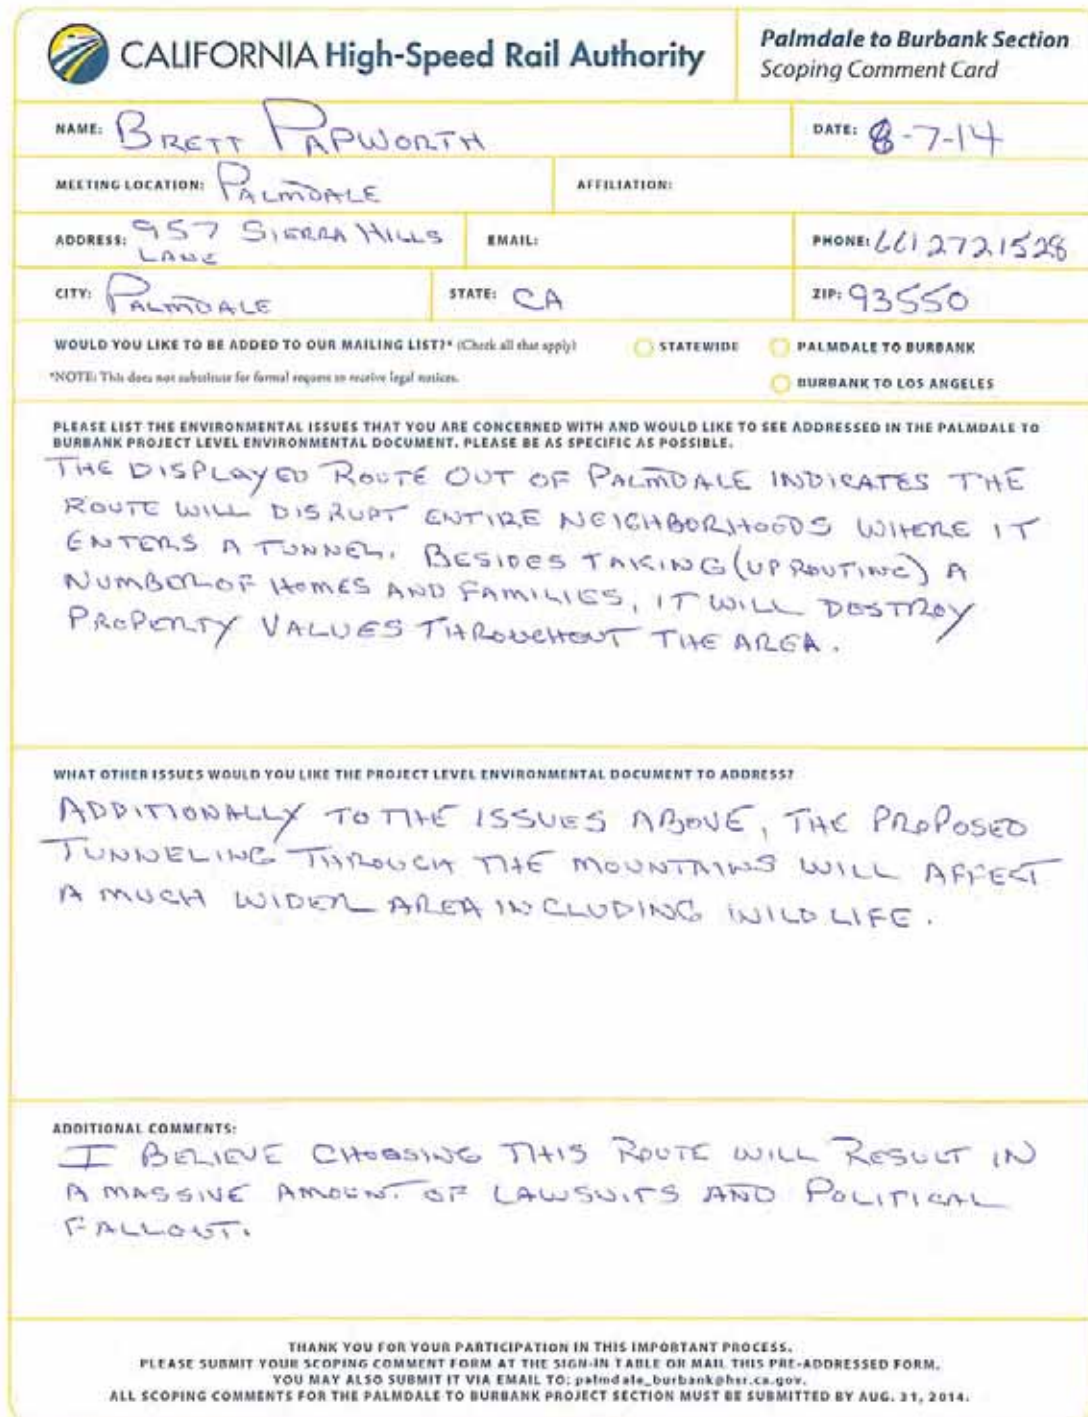 CALIFORNIA High-Speed Rail Authority
Palmdale to Burbank Section
Scoping Comment Card
NAME: BRETT PAPWORTH
DATE: 8-7-14
MEETING LOCATION: PALMDALE
AFFILIATION:
ADDRESS: 957 SIERRA HILLS
LANE
EMAIL:
PHONE: 6612721528
CITY: PALMDALE
STATE: CA
ZIP: 93550
WOULD YOU LIKE TO BE ADDED TO OUR MAILING LIST?* (Check all that apply)
STATEWIDE
PALMDALE TO BURBANK
*NOTE: This does not substitute for formal request to receive legal notices.
BURBANK TO LOS ANGELES
PLEASE LIST THE ENVIRONMENTAL ISSUES THAT YOU ARE CONCERNED WITH AND WOULD LIKE TO SEE ADDRESSED IN THE PALMDALE TO
BURBANK PROJECT LEVEL ENVIRONMENTAL DOCUMENT. PLEASE BE AS SPECIFIC AS POSSIBLE.
THE DISPLAYED ROUTE OUT OF PALMDALE INDICATES THE
ROUTE WILL DISRUPT ENTIRE NEIGHBORHOODS WHERE IT
ENTERS A TUNNEL. BESIDES TAKING (UPROUTING) A
NUMBER OF HOMES AND FAMILIES, IT WILL DESTROY
PROPERTY VALUES THROUGHOUT THE AREA.
WHAT OTHER ISSUES WOULD YOU LIKE THE PROJECT LEVEL ENVIRONMENTAL DOCUMENT TO ADDRESS?
ADDITIONALLY TO THE ISSUES ABOVE, THE PROPOSED
TUNNELING THROUGH THE MOUNTAINS WILL AFFECT
A MUCH WIDER AREA INCLUDING WILDLIFE.
ADDITIONAL COMMENTS:
I BELIEVE CHOOSING THIS ROUTE WILL RESULT IN
A MASSIVE AMOUNT OF LAWSUITS AND POLITICAL
FALLOUT.
THANK YOU FOR YOUR PARTICIPATION IN THIS IMPORTANT PROCESS.
PLEASE SUBMIT YOUR SCOPING COMMENT FORM AT THE SIGN-IN TABLE OR MAIL THIS PRE-ADDRESSED FORM.
YOU MAY ALSO SUBMIT IT VIA EMAIL TO: palmdale_burbank@hsr.ca.gov.
ALL SCOPING COMMENTS FOR THE PALMDALE TO BURBANK PROJECT SECTION MUST BE SUBMITTED BY AUG. 31, 2014.